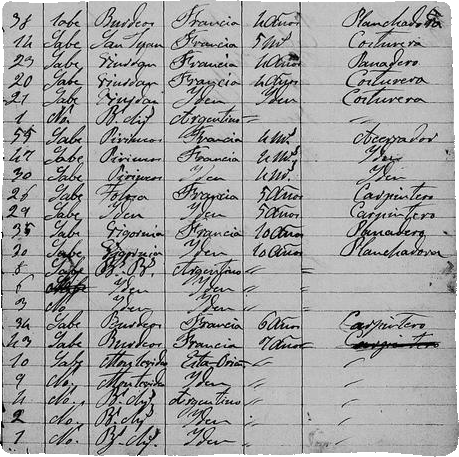 38 Sabe Burdeos Francia 4 Años Planchadora
14 Sabe San Juan Francia 5 Ms. Costurera
23 Sabe Francia 4 Años Panadero
20 Sabe Francia 4 Años Costurera
21 Sabe Yden Yden Costurera
1 No. Bs. Ays. Argentino " "
55 Sabe Pirineos Francia 4 Ms. Acerrador
47 Sabe Pirineos Francia Ms. Yden
30 Sabe Pirineos Francia 4 Ms. Yden
26 Sabe Tolosa Francia 5 Años Carpintero
29 Sabe Yden Yden 5 Años Carpintero
35 Sabe Francia 10 Años
20 Sabe Yden 10 Años Planchadora
Sabe Argentino " "
Yden Yden " "
3 Yden Yden " "
34 Sabe Burdeos Francia 6 Años Carpintero
43 Sabe Burdeos Francia Años Carpintero
10 Sabe Montevideo " "
9 No. Montevideo Yden " "
4 No. Bs. Ays. Argentino " "
2 No. Bs. Ays. Yden " "
1 No. Bs. Ays. Yden " "